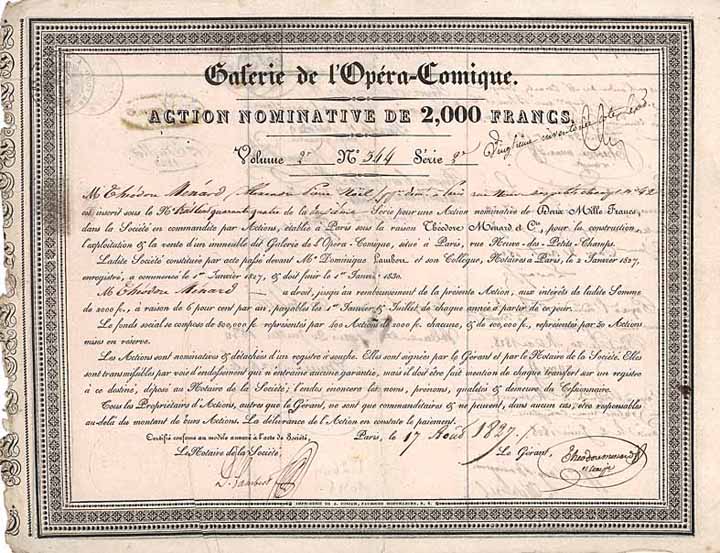 Galerie de l'Opéra-Comique.
ACTION NOMINATIVE DE 2,000 FRANCS.
Volume 2e No 344 Série 2e
M. Théodore Ménard,
est inscrit sous le No trois cent quarante quatre de la deuxième Série pour une Action nominative de Deux Mille Francs,
dans la Société en commandite par Actions, établie à Paris sous la raison Théodore Ménard et Cie, pour la construction,
l'exploitation & la vente d'un immeuble dit Galerie de l'Opéra-Comique, situé à Paris, rue Neuve-des-Petits-Champs.
Ladite Société constituée par acte passé devant Me Dominique Lambert et son Collègue, Notaires à Paris, le 2 Janvier 1827,
enregistré, a commencé le 1er Janvier 1827, & doit finir le 1er Janvier 1830.
M. Théodore Ménard a droit, jusqu'au remboursement de la présente Action, aux intérêts de ladite Somme
de 2000 fr., à raison de 6 pour cent par an, payables les 1er Janvier & Juillet de chaque année à partir de ce jour.
Le fonds social se compose de 800,000 fr. représentés par 400 Actions de 2000 fr. chacune, & de 100,000 fr., représentés par 50 Actions
mises en réserve.
Les Actions sont nominatives & détachées d'un registre à souche. Elles sont signées par le Gérant et par le Notaire de la Société. Elles
sont transmissibles par voie d'endossement qui n'entraîne aucune garantie, mais il doit être fait mention de chaque transfert sur un registre
à ce destiné, déposé au Notaire de la Société; l'endos énoncera les noms, prénoms, qualités & demeure du Cessionnaire.
Tous les Propriétaires d'Actions, autres que le Gérant, ne sont que commanditaires & ne peuvent, dans aucun cas, être responsables
au-delà du montant de leurs Actions. La délivrance de l'Action en constate le paiement.
Certifié conforme au modèle annexé à l'acte de Société,
Paris, le 17 Août 1827.
Le Notaire de la Société
Le Gérant,
D. Lambert
Theodore menard